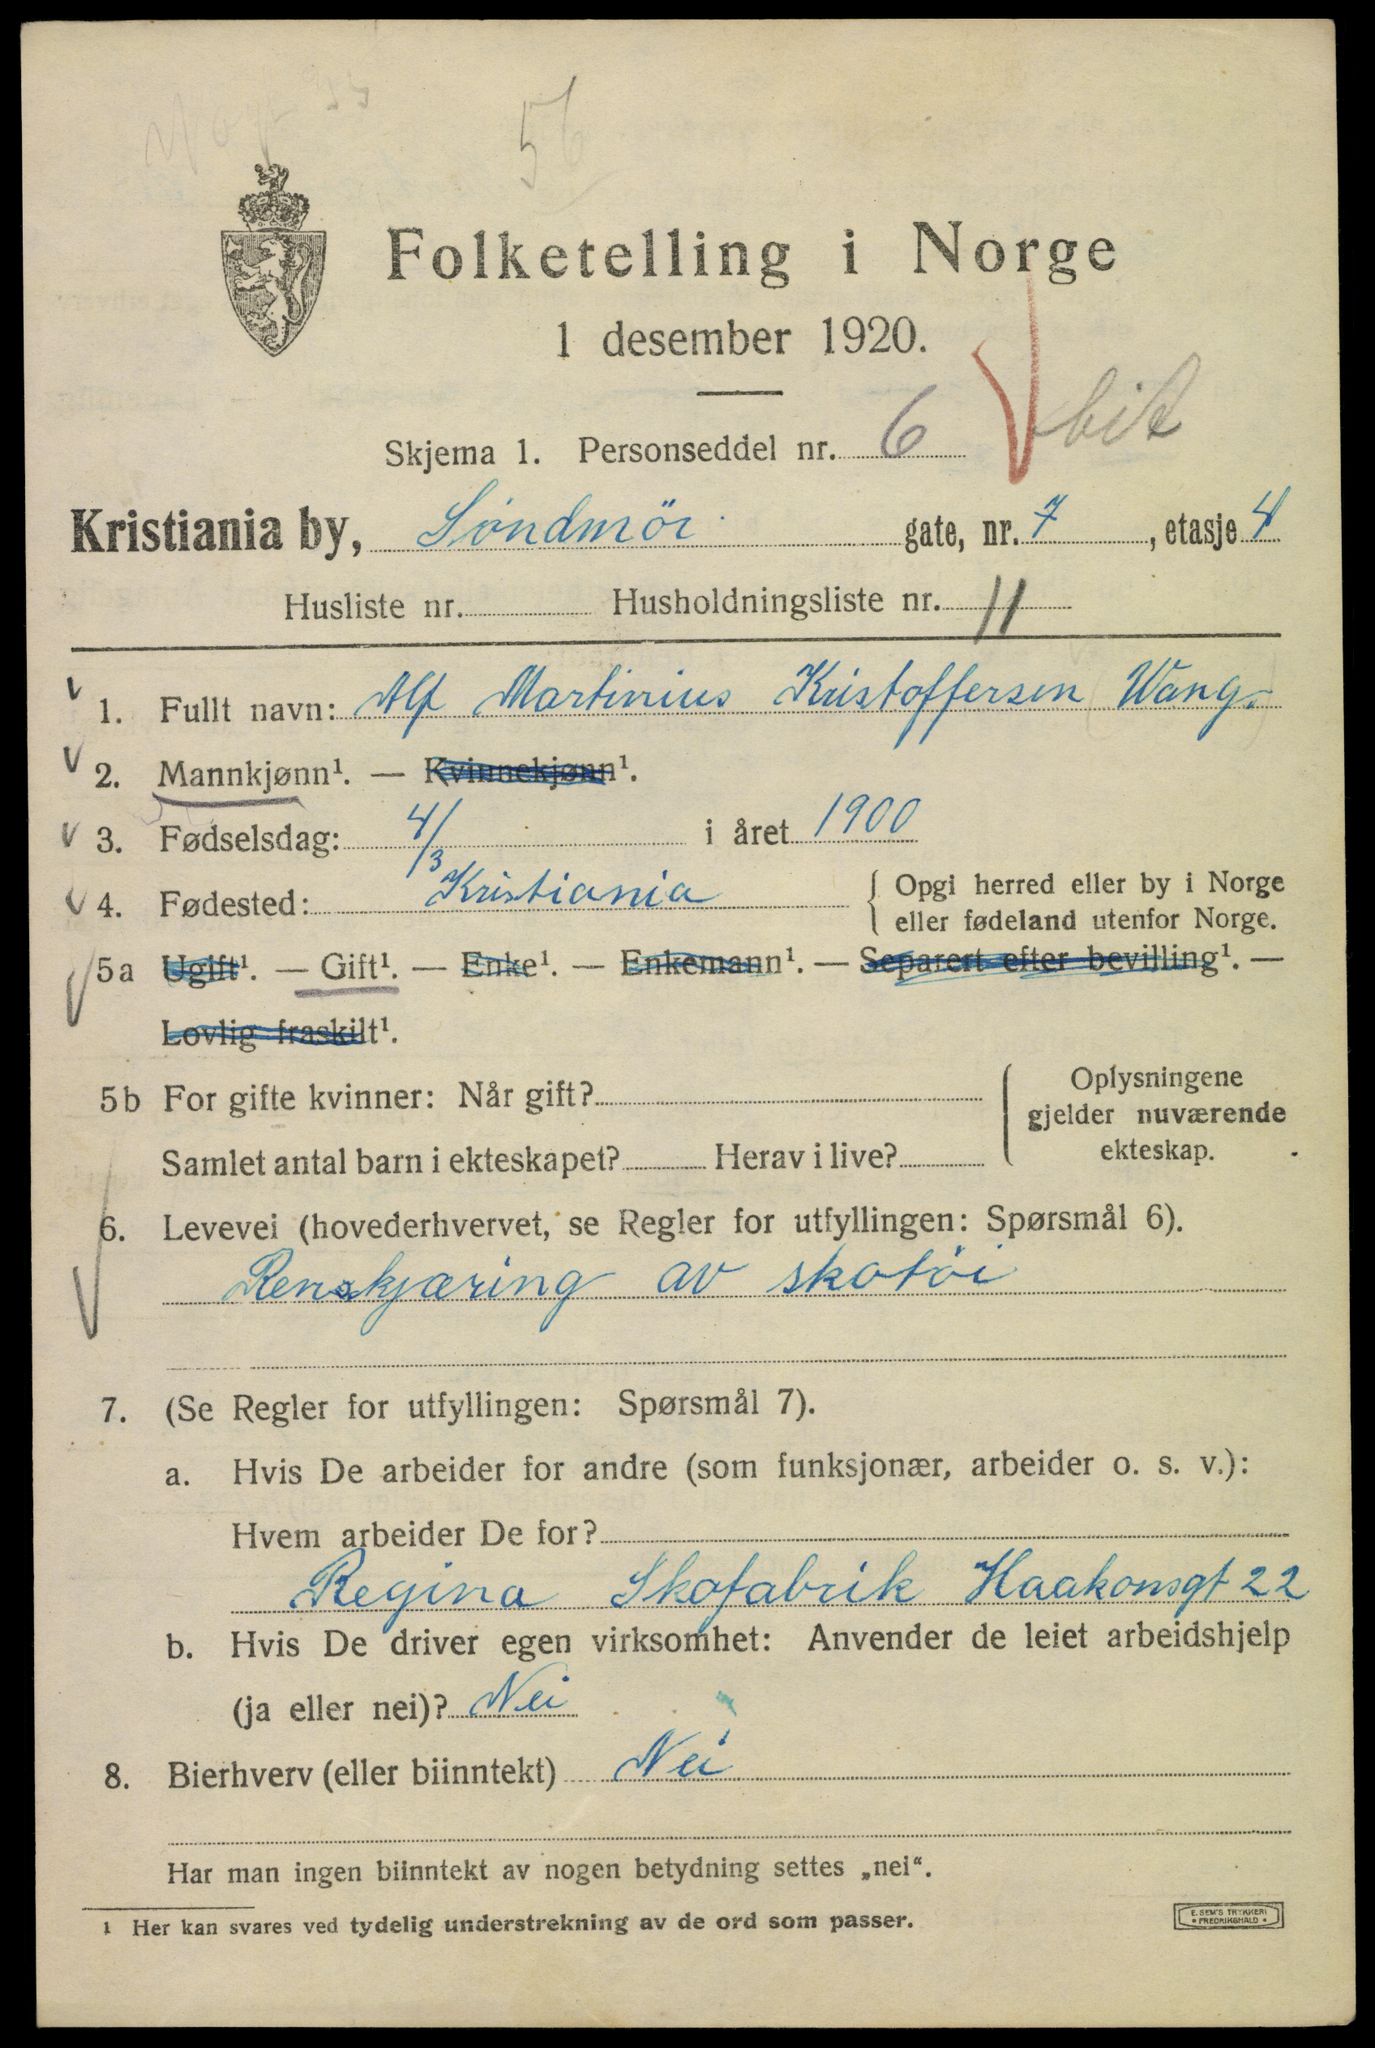 56
Folketelling i Norge
1 desember 1920.
Skjema 1. Personseddel nr. 6 bit
Kristiania by, Söndmör gate, nr. 7, etasje 4
Husliste nr. Husholdningsliste nr. 11
1. Fullt navn: Alf Martinius Kristoffersen (Wang.)
2. Mannkjønn¹. — Kvinnekjønn¹.
3. Fødselsdag: 4/3 i året 1900
4. Fødested: Kristiania { Opgi herred eller by i Norge
eller fødeland utenfor Norge.
5a Ugift¹. — Gift¹. — Enke¹. — Enkemann¹. — Separert efter bevilling¹. —
Lovlig fraskilt¹.
5b For gifte kvinner: Når gift?
Samlet antal barn i ekteskapet? Herav i live?
{ Oplysningene
gjelder nuværende
ekteskap.
6. Levevei (hovederhvervet, se Regler for utfyllingen: Spørsmål 6).
Renskjæring av skotöi
7. (Se Regler for utfyllingen: Spørsmål 7).
a. Hvis De arbeider for andre (som funksjonær, arbeider o. s. v.):
Hvem arbeider De for?
Regina Skofabrik Haakonsgt 22
b. Hvis De driver egen virksomhet: Anvender de leiet arbeidshjelp
(ja eller nei)? Nei
8. Bierhverv (eller biinntekt) Nei
Har man ingen biinntekt av nogen betydning settes „nei“.
1 Her kan svares ved tydelig understrekning av de ord som passer.
E. SEM'S TRYKKERI
• FREDRIKSHALD •